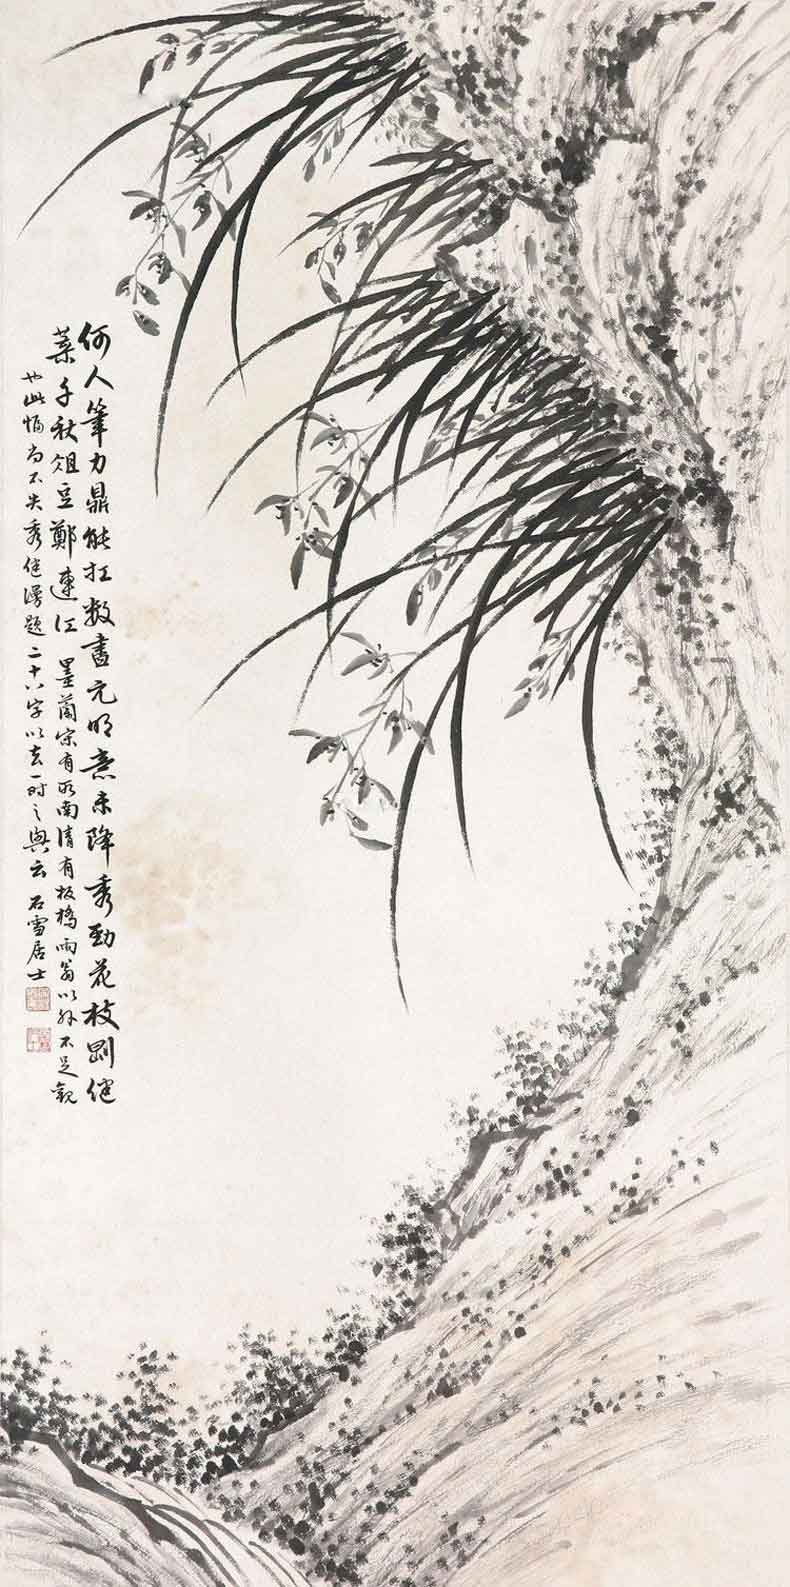 何人筆力鼎能扛數畫元明意未降秀勁花枝剛健
葉千秋俎豆鄭連江 墨蘭宋有所南清有板橋兩翁以外不足觀
也此幅尚不失秀健漫題二十八字以志一時之興云 石雪居士